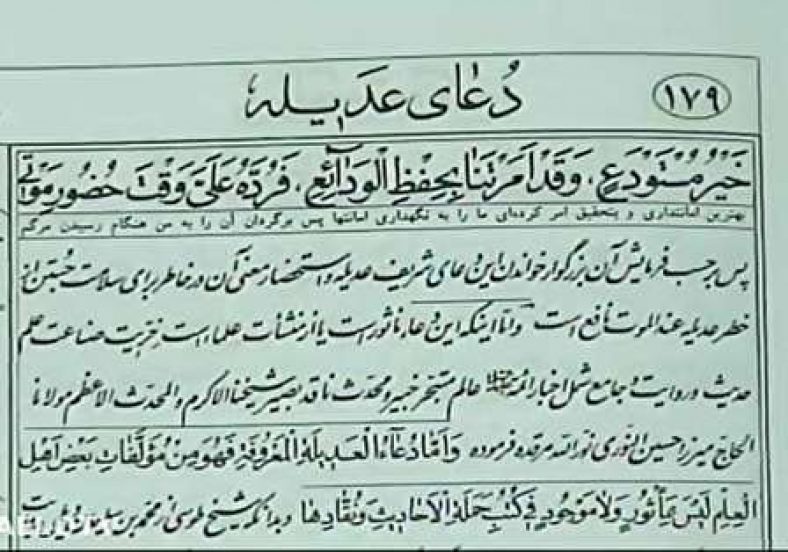 ١٧٩
دُعای عدیله
خَيْرُ مُسْتَوْدَعٍ، وَقَدْ أَمَرْتَنَا بِحِفْظِ الْوَدَائِعِ، فَرُدَّهُ عَلَيَّ وَقْتَ حُضُورِ مَوْتِي
بهترین امانتداری و بتحقیق امر کرده‌ای ما را به نگهداری امانتها پس برگردان آن را به من هنگام رسیدن مرگم
پس برحسب فرمایش آن بزرگوار خواندن این دعای شریف عدیله و استحضار معنی آن در خاطر برای سلامت جستن از
خطر عدیله عندالموت نافع است و اما اینکه این دعا مأثور است یا از منشآت علماء است خرّیت صناعت علم
حدیث و روایت و جامع شمل اخبار ائمه عالم متبحّر خبیر و محدّث ناقد بصیر شیخنا الاکرم و المحدث الاعظم مولانا
الحاج میرزا حسین النوری نورالله مرقده فرموده وَأَمَّا دُعَاءُ الْعَدِيلَةِ الْمَعْرُوفَةِ فَهُوَ مِنْ مُؤَلَّفَاتِ بَعْضِ أَهْلِ
الْعِلْمِ لَيْسَ بِمَأْثُورٍ وَلَا مَوْجُودٍ فِي كُتُبِ حَمَلَةِ الْأَحَادِيثِ وَنُقَّادِهَا وبدانکه شیخ طوسی از محمد بن سلیمان دیلمی روایت